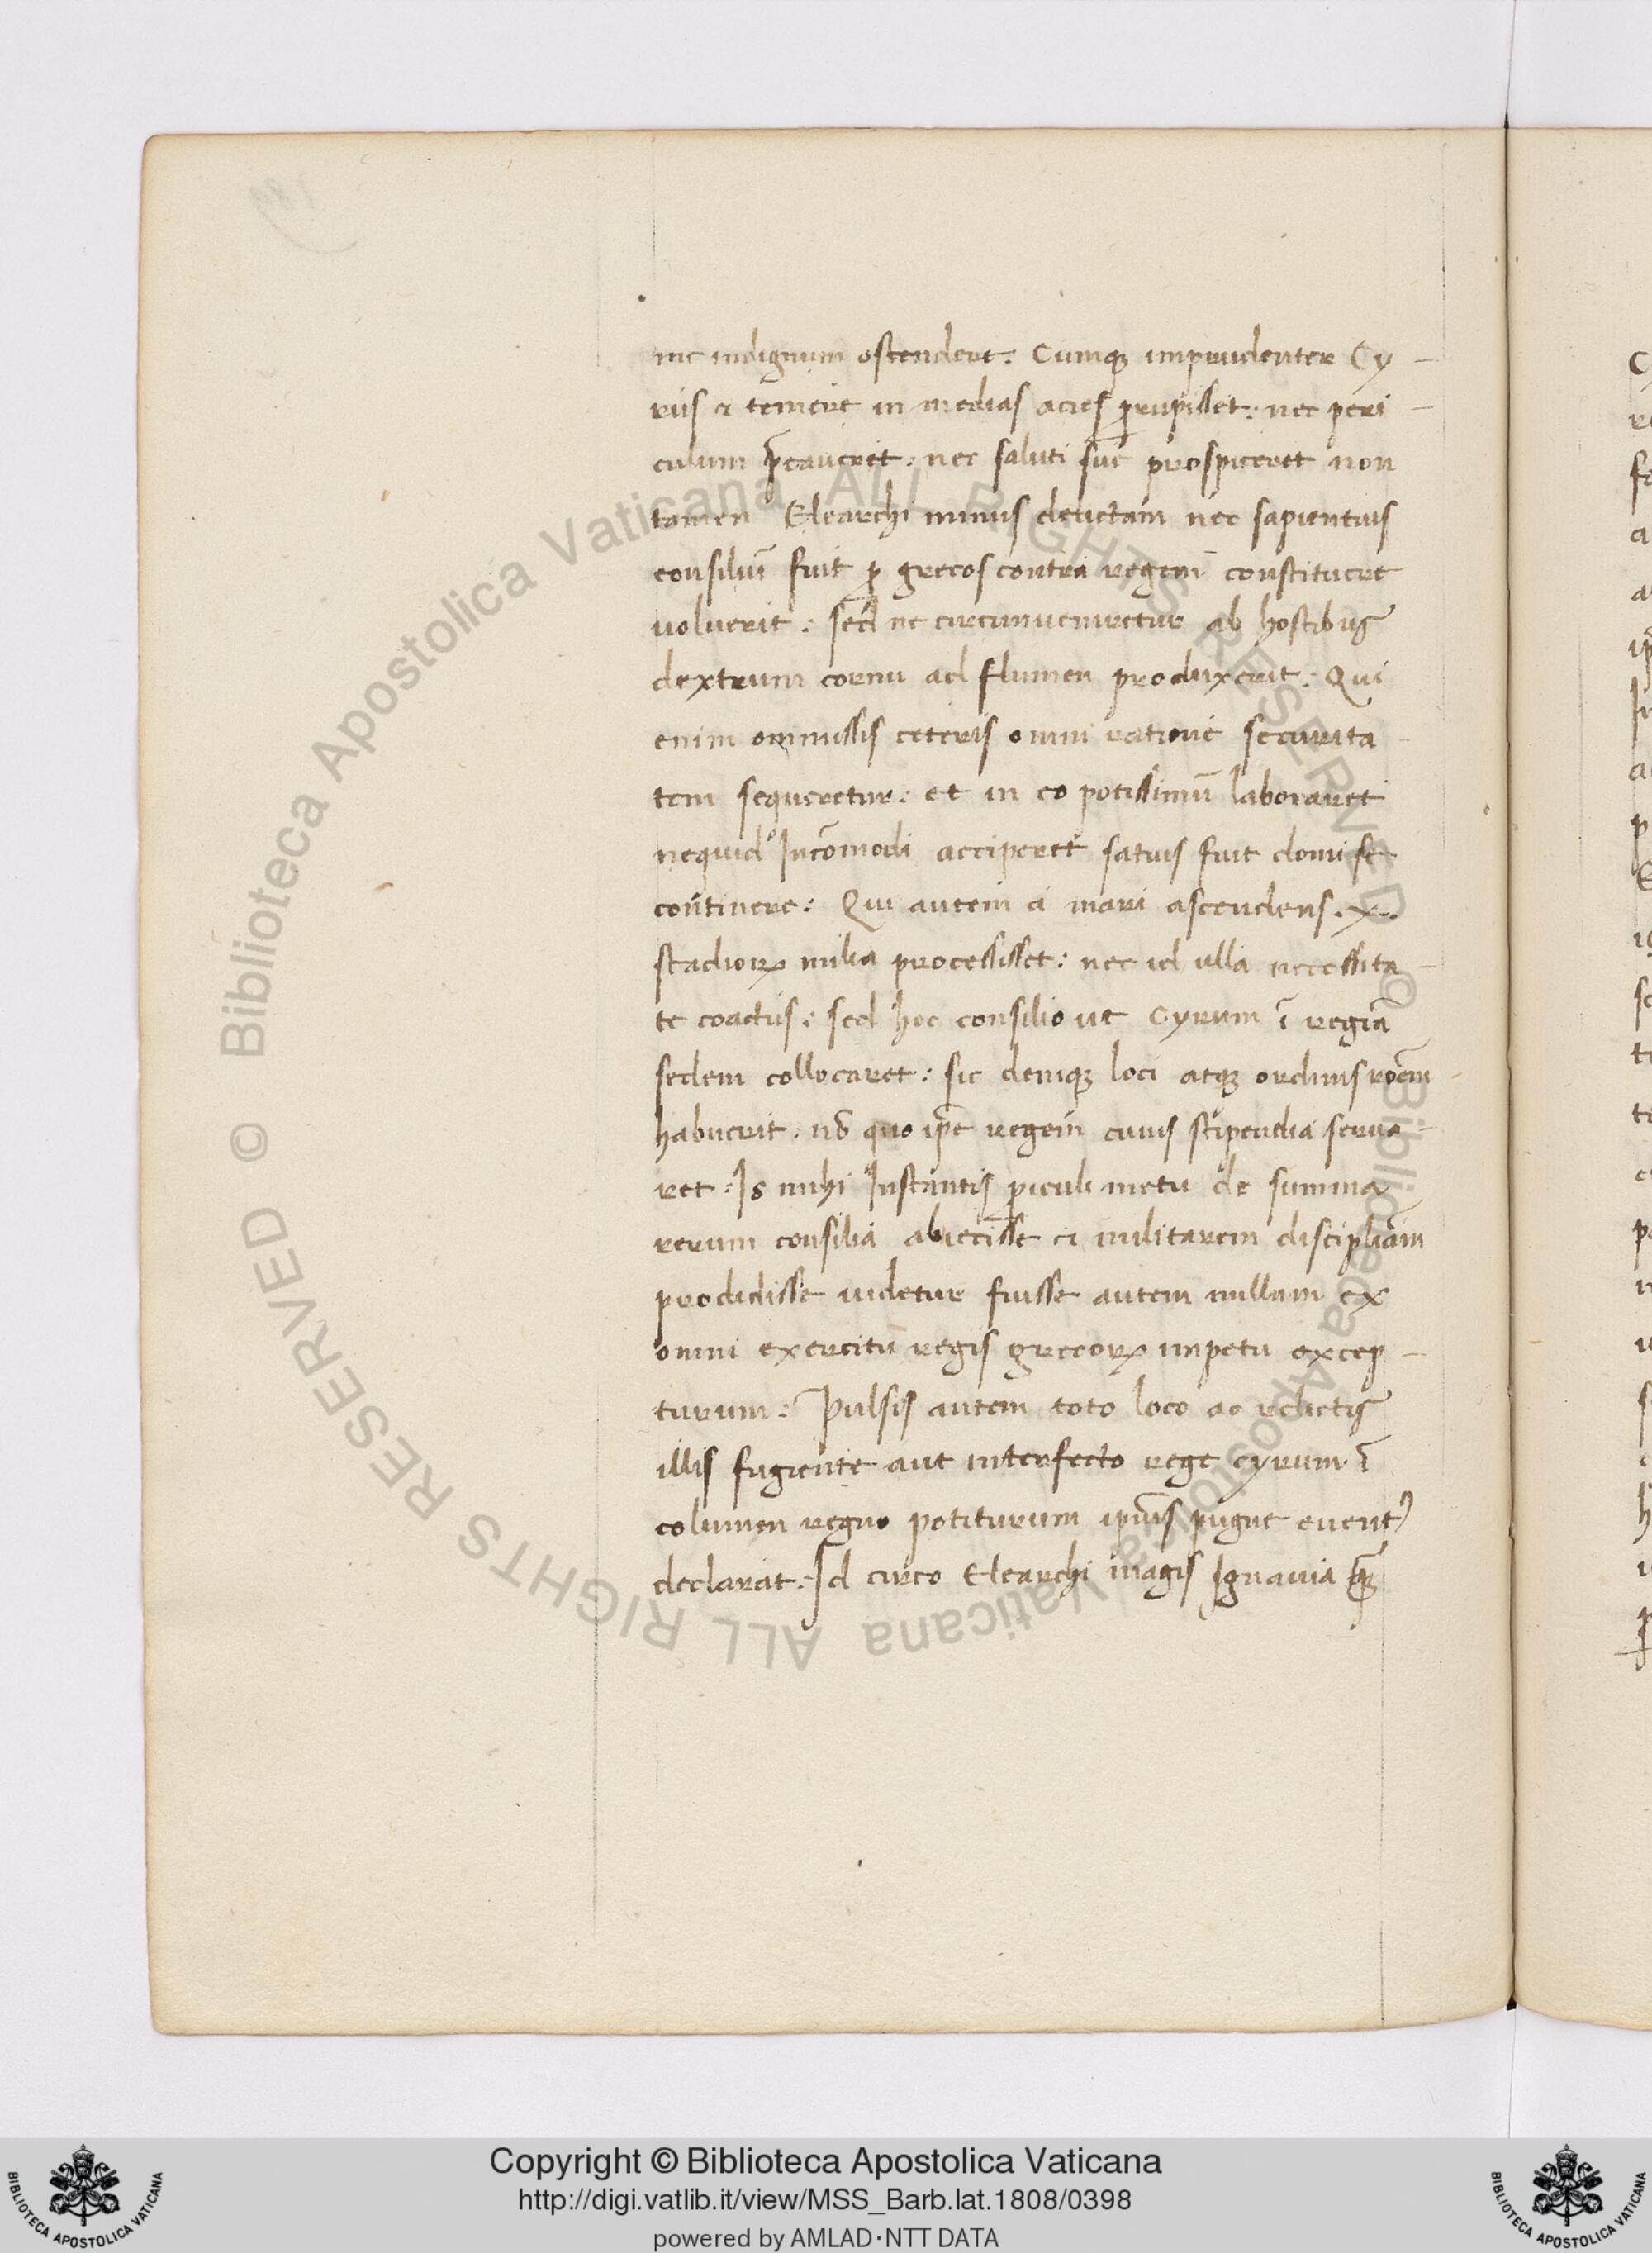 me indignum ostenderet: Cumqꝫ imprudenter Cy-
rus & temere in medias acies ꝓrupisset: nec peri-
culum p̄caueret: nec saluti sue prospiceret non
tamen Clearchi minus deuictam nec sapientius
consiliū fuit ꝓ grecos contra regem constituere
uoluerit: sed ne circumueniretur ab hostibus
dextrum cornu ad flumen produxerit: Qui
enim ommissis ceteris omni ratione securita-
tem sequeretur: et in eo potissimū laboraret
nequid Incōmodi acciperet satius fuit domi se
continere: Qui autem a mari ascendens .x.
stadioꝝ milia processisset: nec id ulla necessita-
te coactus: sed hoc consilio ut Cyrum ī regia
sedem collocaret: sic deniqꝫ loci atqꝫ ordinis rōem
habuerit. nō quo ip̄e regem cuius stipendia serua-
ret: Is mihi Instantis ꝑiculi metu de summa
rerum consilia abiecisse & militarem disciplinā
prodidisse uidetur fuisse autem nullum ex
omni exercitu regis grecoꝝ impetu excep-
turum: Pulsis autem toto loco ac relictis
illis fugiente aut interfecto rege cyrum ī
columen regno potiturum ip̄ius pugne euent⁹
declarat: Id circo Clearchi magis Ignauia qꝫ
Copyright © Biblioteca Apostolica Vaticana
http://digi.vatlib.it/view/MSS_Barb.lat.1808/0398
powered by AMLAD·NTT DATA
BIBLIOTECA APOSTOLICA VATICANA
BIBLIOTECA APOSTOLICA VATICANA
© Biblioteca Apostolica Vaticana ALL RIGHTS RESERVED © Biblioteca Apostolica Vaticana ALL RIGHTS RESERVED